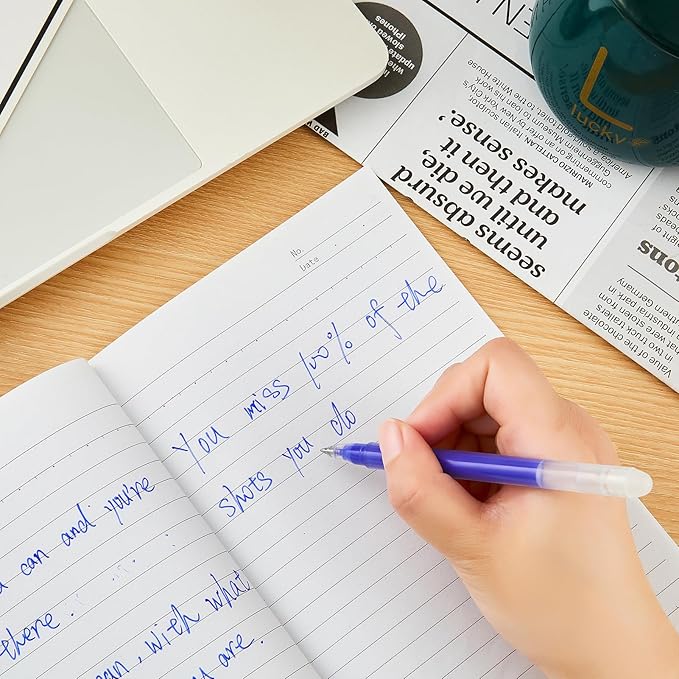 No.
Date
You miss 100% of the
shots you do
can and you're
there.
with what
are.
seems absurd
until we die,
and then it
makes sense.'
MAURIZIO CATTELAN, Italian sculptor,
commenting on an offer by New York City's
Guggenheim Museum to loan his work,
toilet, to the White House
L
lucky
BAD
slowed
iPhones
update
EN
Value of the chocolate
in two truck trailers
that were stolen from
an industrial park in
southern Germany
tons